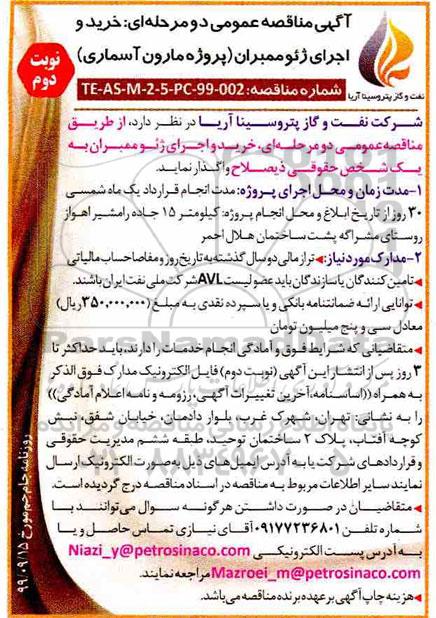 آگهی مناقصه عمومی دو مرحله‌ای: خرید و
اجرای ژئوممبران (پروژه مارون آسماری)
نوبت دوم
نفت و گاز پتروسینا آریا
شماره مناقصه: TE-AS-M-2-5-PC-99-002
شرکت نفت و گاز پتروسینا آریا در نظر دارد، از طریق
مناقصه عمومی دو مرحله‌ای، خرید و اجرای ژئوممبران به
یک شخص حقوقی ذیصلاح واگذار نماید.
۱-مدت زمان و محل اجرای پروژه: مدت انجام قرارداد یک ماه شمسی
۳۰ روز از تاریخ ابلاغ و محل انجام پروژه: کیلومتر ۱۵ جاده رامشیر اهواز
روستای مشراگه پشت ساختمان هلال احمر
۲-مدارک مورد نیاز: ◄تراز مالی دو سال گذشته به تاریخ روز و مفاصاحساب مالیاتی
◄تامین کنندگان یا سازندگان باید عضو لیست AVL شرکت ملی نفت ایران باشند.
◄توانایی ارائه ضمانتنامه بانکی و یا سپرده نقدی به مبلغ (۳۵۰,۰۰۰,۰۰۰ ریال)
معادل سی و پنج میلیون تومان
◄متقاضیانی که شرایط فوق و آمادگی انجام خدمات را دارند، باید حداکثر تا
۳ روز پس از انتشار این آگهی (نوبت دوم) فایل الکترونیک مدارک فوق الذکر
به همراه ((اساسنامه، آخرین تغییرات آگهی، رزومه و نامه اعلام آمادگی))
را به نشانی: تهران، شهرک غرب، بلوار دادمان، خیابان شفق، نبش
کوچه آفتاب، پلاک ۲ ساختمان توحید، طبقه ششم مدیریت حقوقی
و قراردادهای شرکت یا به آدرس ایمیل‌های ذیل به صورت الکترونیک ارسال
نمایند سایر اطلاعات مربوط به مناقصه در اسناد مناقصه درج گردیده است.
◄متقاضیان در صورت داشتن هر گونه سوال می‌توانند با
شماره تلفن ۰۹۱۷۷۲۳۶۸۰۱ آقای نیازی تماس حاصل و یا
به آدرس پست الکترونیکی Niazi_y@petrosinaco.com
Mazroei_m@petrosinaco.com مراجعه نمایند.
◄هزینه چاپ آگهی بر عهده برنده مناقصه می‌باشد.
روزنامه جام جم مورخ ۹۹/۰۹/۱۵